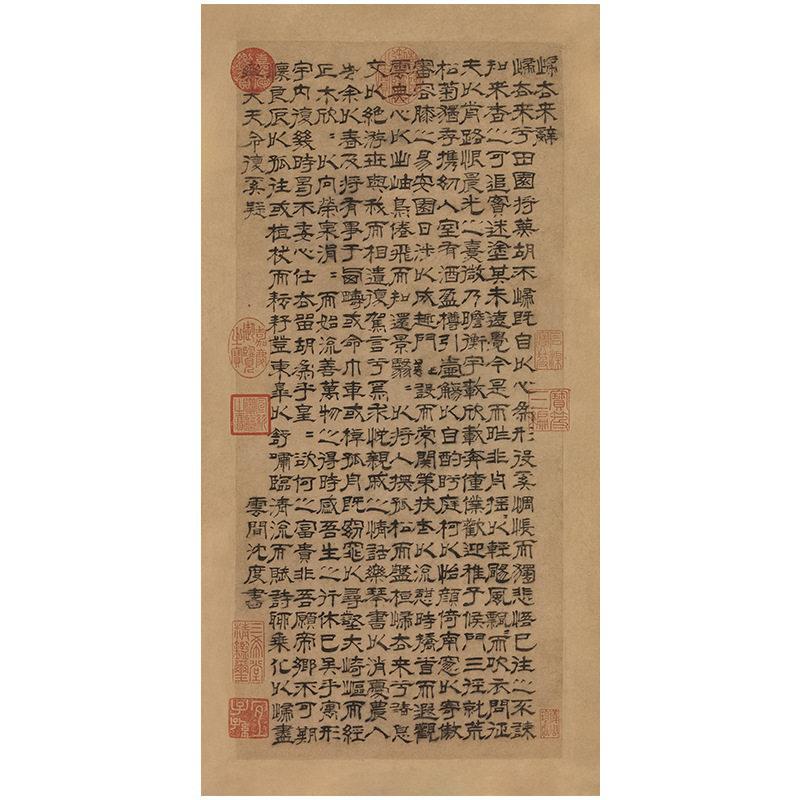 歸去來辭
歸去來兮田園將蕪胡不歸既自以心為形役奚惆悵而獨悲悟已往之不諫
知來者之可追寔迷塗其未遠覺今是而昨非舟搖〻以輕颺風飄〻而吹衣問征
夫以前路恨晨光之熹微乃瞻衡宇載欣載奔僮僕歡迎稚子候門三徑就荒
松菊猶存攜幼入室有酒盈樽引壺觴以自酌眄庭柯以怡顏倚南窗以寄傲
審容膝之易安園日涉以成趣門雖設而常關策扶老以流憩時矯首而遐觀
雲無心以出岫鳥倦飛而知還景翳〻以將入撫孤松而盤桓歸去來兮請息
交以絕游世與我而相遺復駕言兮焉求悅親戚之情話樂琴書以消憂農人
告余以春及將有事于西疇或命巾車或棹孤舟既窈窕以尋壑亦崎嶇而經
丘木欣〻以向榮泉涓〻而始流善萬物之得時感吾生之行休已矣乎寓形
宇內復幾時曷不委心任去留胡為乎皇〻欲何之富貴非吾願帝鄉不可期
懷良辰以孤往或植杖而耘耔登東皋以舒嘯臨清流而賦詩聊乘化以歸盡
樂夫天命復奚疑
雲間沈度書
嘉慶御覽之寶
三希堂精鑑璽
宜子孫
寶笈三編